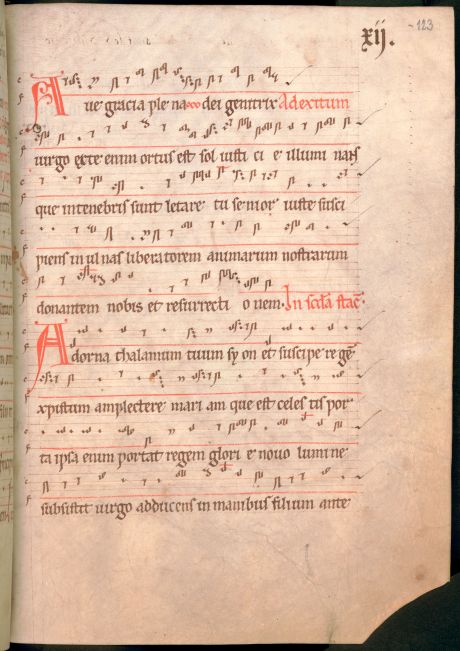 123
xij.
Ave gracia plena dei genitrix Ad exitum
virgo ecce enim ortus est sol iusti ci e illumi nans
que intenebris sunt letare tu senior iuste susci
piens in ul nas liberatorem animarum nostrarum
donantem nobis et resurrecti o nem. In sc̄la stac̄.
Adorna thalamum tuum sy on et suscipe re gē
xpistum amplectere mari am que est celes tis por
ta ipsa enim portat regem glori e novo lumi ne
subsistit virgo adducens in manibus filium ante